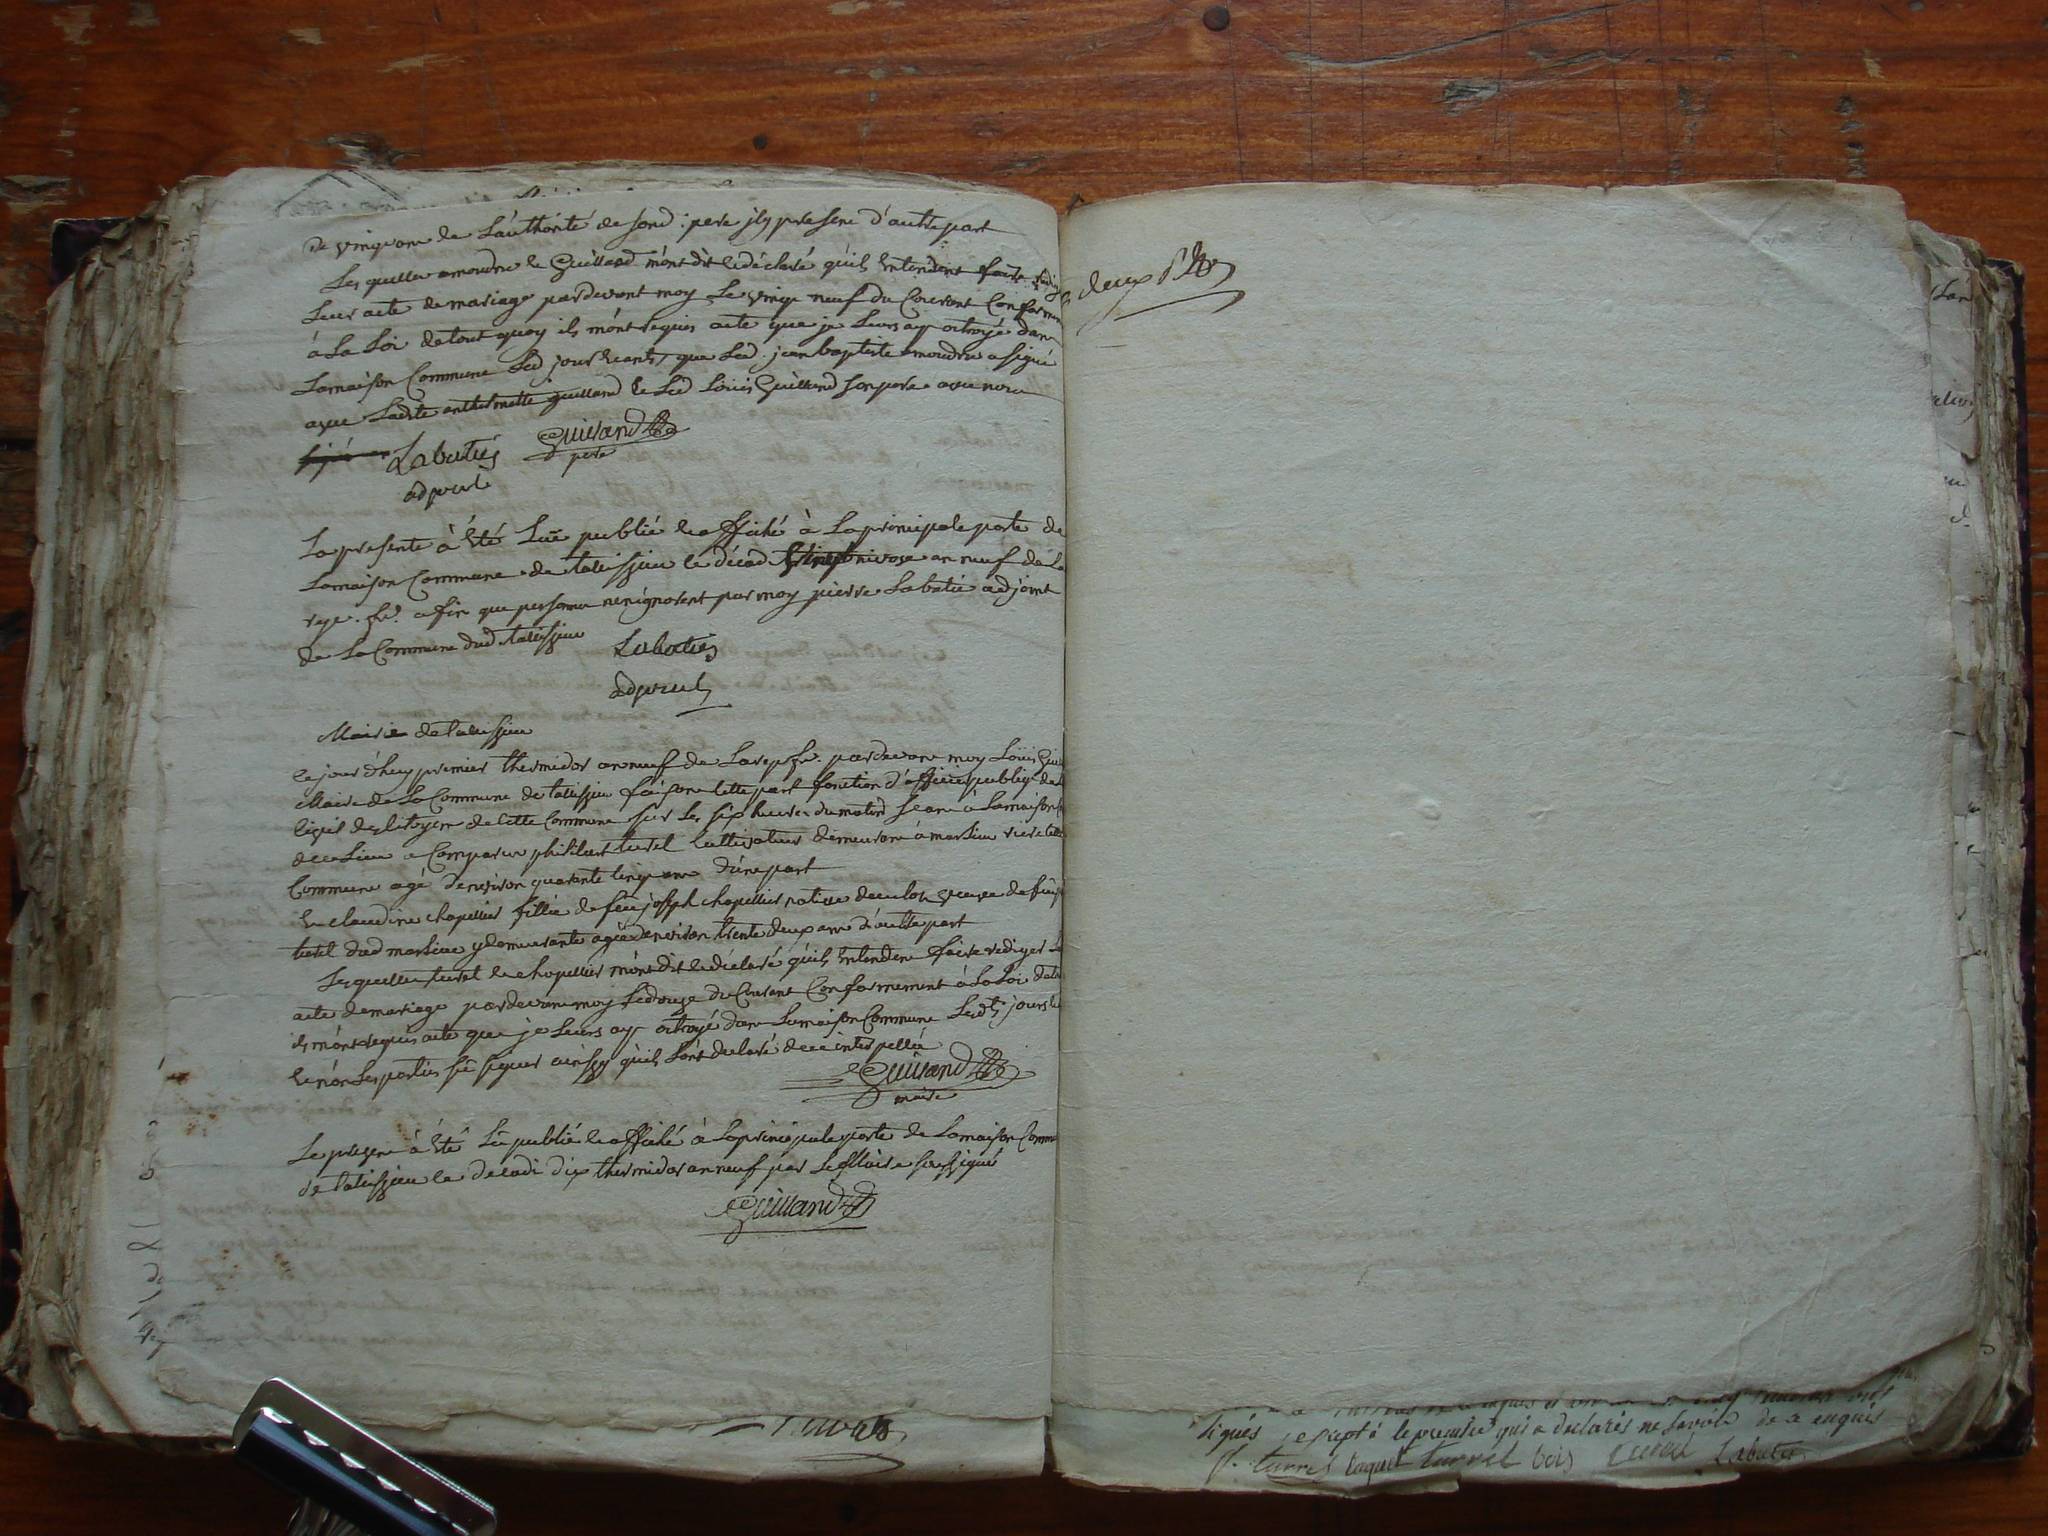 de vingt ans de L'authorité de sond. pere jcy present d'autre part
Les quelles amoudru et Guilland m'ont dit et déclaré qu'ils Entendent faire
Leur acte de mariage pardevant moy Le vingt neuf du Courant Conformem
á La Loi de tout quoy ils m'ont requis acte que je Leurs ay octroyé dans
Lamaison Commune Led jour et ants, que Led. jean baptiste amoudru a signé
avec Ladite anthelmette guilland et Led Loüis Guilland son pere avec nous
Labatiés Guilland
adjoint pere
La presente à été Lüe publié et affiché à La principale porte de
Lamaison Commune de talissieu le décadi nivose an neuf de La
rep. fr. afin que personne n'en ignorent par moy pierre Labatié adjoint
de La Commune dud talissieu
Labatiés
adjoint
Mairie de talissieu
Le jourd'huy premier thermidor an neuf de La rep. fr. pardevant moy Loüis Gui
Maire de La Commune de talissieu faisant cette part fonction d'officier publiq de
des Citoyens de Cette Commune sur Les six heures du matin jeans à Lamaison
de ce Lieu a Comparu philibert turel Cultivateur demeurant à marlieu rière cette
Commune agé d'environ quarante Cinq ans d'une part
Et claudine chapellier fillie de feu joseph chapellier native de culoz veuve de feu
turel dud marlieu y demeurante agée d'environ trente deux ans d'autre part
Lesquelles turel et chapellier m'ont dit et déclaré qu'ils Entendent faire rediger
acte de mariage pardevant moy Le douze du Courant Conformement à La Loi
ils m'ont requis acte que je Leurs ay octroyé dans Lamaison Commune Lesdts jours
et n'ont Les parties sû signer ainssy qu'ils L'ont déclaré de ce interpellée
Guilland
maire
Le present à été Lû publié et affiché à La principale porte de Lamaison Comm
de talissieu le decadi dix thermidor an neuf par Le Maire soussigné
Guilland
deux
signés, excepté le premier qui a declarés ne savoir de ce enquis
turrel bois Labatie